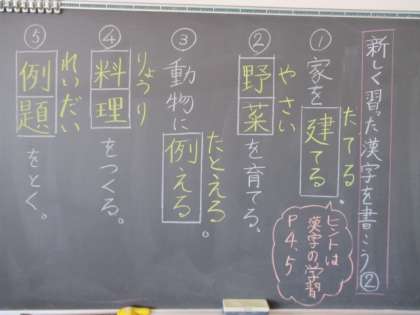 新しく習った漢字を書こう②
①家を建てる。
たてる
ヒントは
漢字の学習
P4、5
②野菜を育てる。
やさい
③動物に例える。
たとえる
④料理をつくる。
りょうり
⑤例題をとく。
れいだい